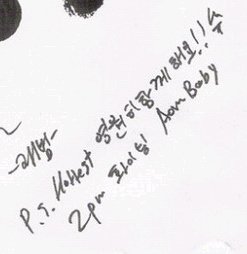 -재범-
P.S. Hottest 영원히 함께해요!!
2pm 화이팅 Aom Baby